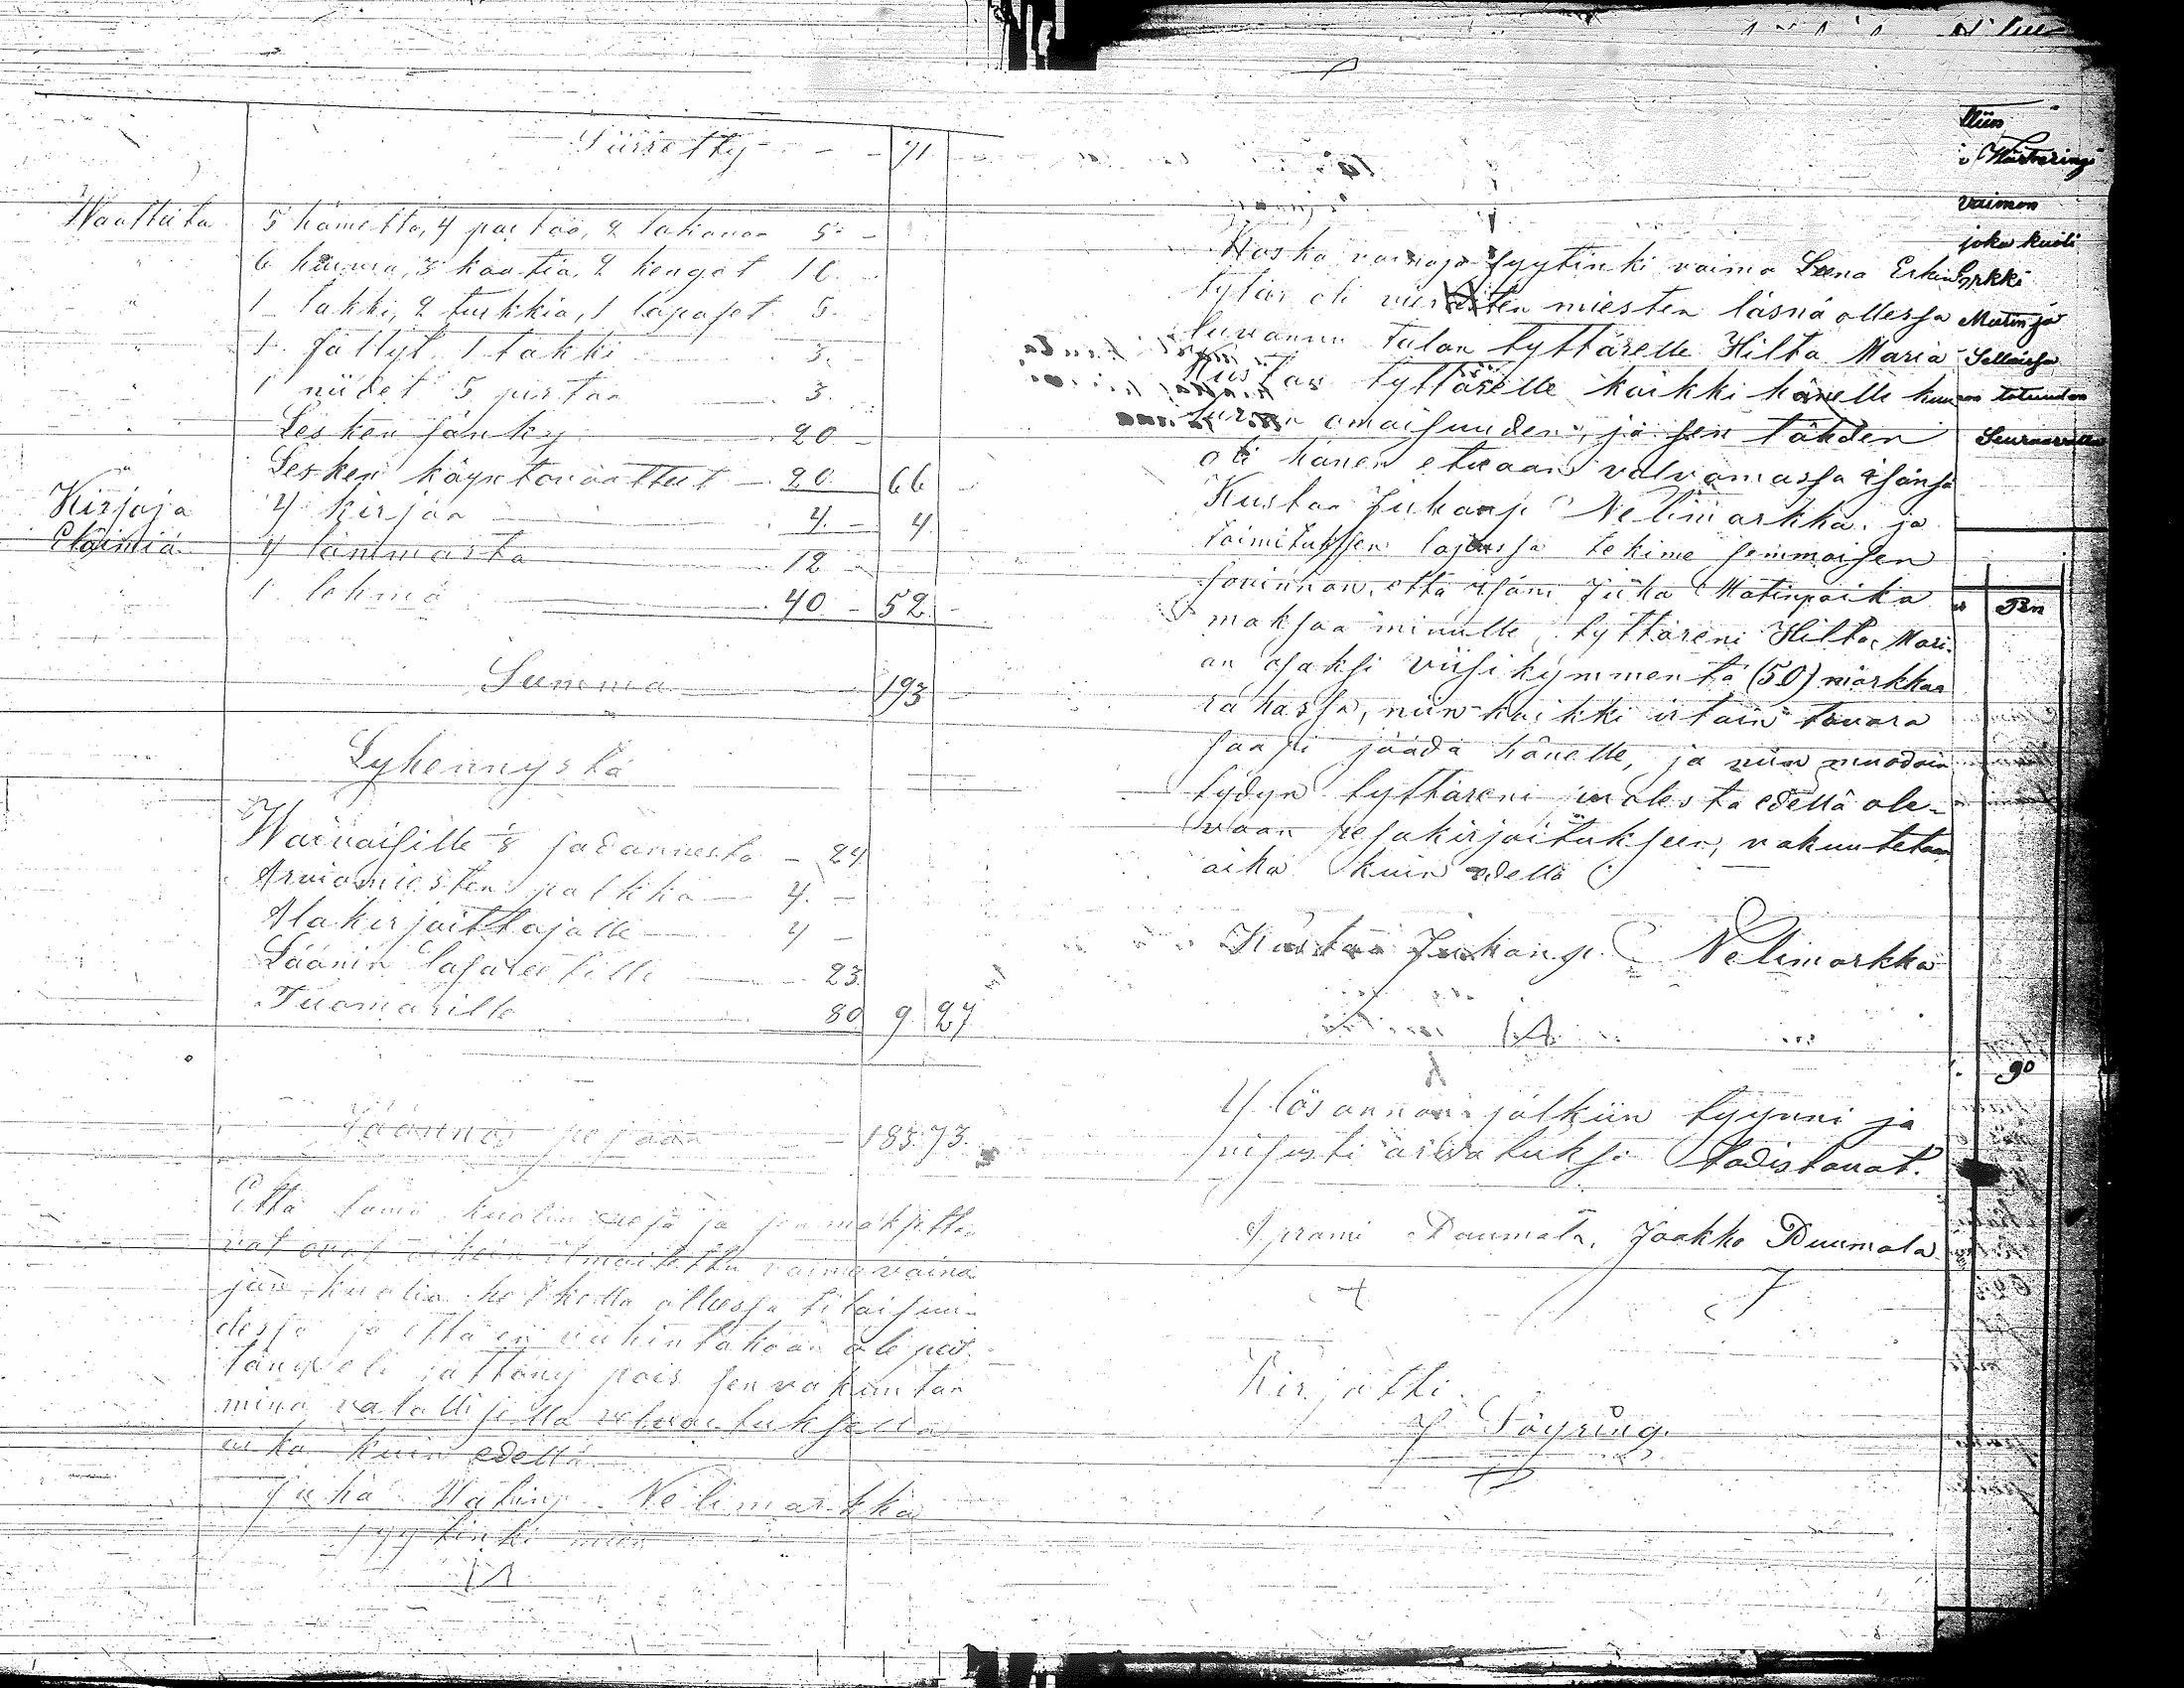 Siirretty - - - 71
Waatteita 5 hametta, 4 paitaa, 2 lakanaa 5 -
" 6 huivia, 3 kaatia, 2 kengät 10 -
" 1 takki, 2 turkkia, 1 lapaset 5 -
" 1 fällyt 1 takki 3 -
" 1 niidet 5 pirtaa 3 -
" Lesken sänky 20 -
" Lesken käyntövaatteet - 20 66 -
Kirjoja 4 kirjaa 4 - 4
Eläimiä 4 lammasta 12 -
" 1 lehmä 40 - 52 -
Summa 193 -
Lyhennystä
Waivaisille 1/8 sadannesta - 24
Arviomiesten palkka - 4 -
Alakirjoittajalle 4 -
Läänin lasareetille 23
Tuomarille 80 9 27
Jäännös pesään - 183.73.
Että tämä kuolinpesä ja sen maksetta-
vat ovat oikein ilmoitettu vaimovaina-
jan kuolin hetkellä ollessa tilaisuu-
dessa ja että en vähintäkään ole peit-
tänyt eli jättäny pois sen vakuutan
minä valallisella velvoituksella
aika kuin edellä
Juha Matinp. Nelimarkka
syytinki mies
Koska vainaja syytinki vaimo Leena Erkin
tytär oli vierasten miesten läsnä ollessa
luvannu talon tyttärelle Hilta Maria
Kustaa tyttärelle kaikki hänelle kuu-
luvan omaisuuden, ja sen tähden
oli hänen etuaan valvomassa isänsä
Kustaa Juhanp. Nelimarkka, ja
toimituksen lajussa tekime semmoisen
sovinnon, että isäni Juha Matinpoika
maksaa minulle, tyttäreni Hilta Mari-
an osaksi viisikymmentä (50) markkaa
rahassa, niin kaikki irtain tavara
saapi jäädä hänelle, ja niin muodoin
tydyn tyttäreni puolesta edellä ole-
vaan pesäkirjoitukseen, vakuutetaan
aika kuin edellä
Kustaa Juhanp. Nelimarkka
Ylösannon jälkiin tyynni ja
visusti arvatuksi todistavat.
Aprami Puumala, Jaakko Puumala
Kirjotti
J Töyring.
vaimon
joka kuoli
Erkki
Matin ja
Sellaissa
totuuden
Seuraavalla
Pen
90